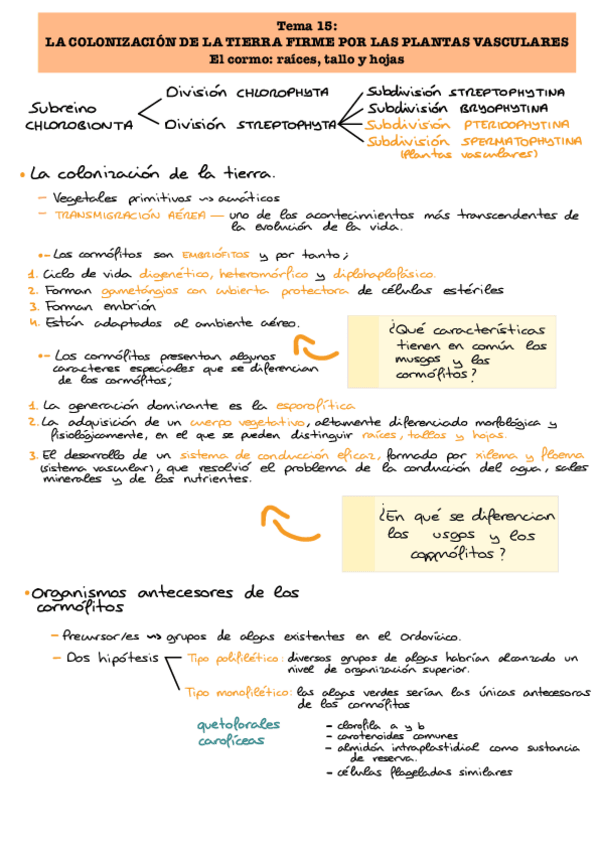 Tema 15:
LA COLONIZACIÓN DE LA TIERRA FIRME POR LAS PLANTAS VASCULARES
El cormo: raíces, tallo y hojas
Subreino
CHLOROBIONTA
División CHLOROPHYTA
División STREPTOPHYTA
Subdivisión STREPTOPHYTINA
Subdivisión BRYOPHYTINA
Subdivisión PTERIDOPHYTINA
Subdivisión SPERMATOPHYTINA
(Plantas vasculares)
• La colonización de la tierra.
- Vegetales primitivos ~> acuáticos
- TRANSMIGRACIÓN AÉREA — uno de los acontecimientos más transcendentes de
la evolución de la vida.
•- Los cormófitos son EMBRIÓFITOS y por tanto;
1. Ciclo de vida digenético, heteromórfico y diplohaplofásico.
2. Forman gametángios con cubierta protectora de células estériles
3. Forman embrión
4. Están adaptados al ambiente aéreo.
¿Qué características
tienen en común los
musgos y los
cormófitos?
•- Los cormófitos presentan algunos
caracteres especiales que se diferencian
de los cormófitos;
1. La generación dominante es la esporofítica
2. La adquisición de un cuerpo vegetativo, altamente diferenciado morfológica y
fisiológicamente, en el que se pueden distinguir raíces, tallos y hojas.
3. El desarrollo de un sistema de conducción eficaz, formado por xilema y floema
(sistema vascular), que resolvió el problema de la conducción del agua, sales
minerales y de los nutrientes.
¿En qué se diferencian
los usgos y los
cormófitos?
• Organismos antecesores de los
cormófitos
- Precursor/es ~> grupos de algas existentes en el Ordovícico.
- Dos hipótesis
Tipo polifilético: diversos grupos de algas habrían alcanzado un
nivel de organización superior.
Tipo monofilético: las algas verdes serían las únicas antecesoras
de los cormófitos
quetoforales
carofíceas
- clorofila a y b
- carotenoides comunes
- almidón intraplastidial como sustancia
de reserva.
- células flageladas similares